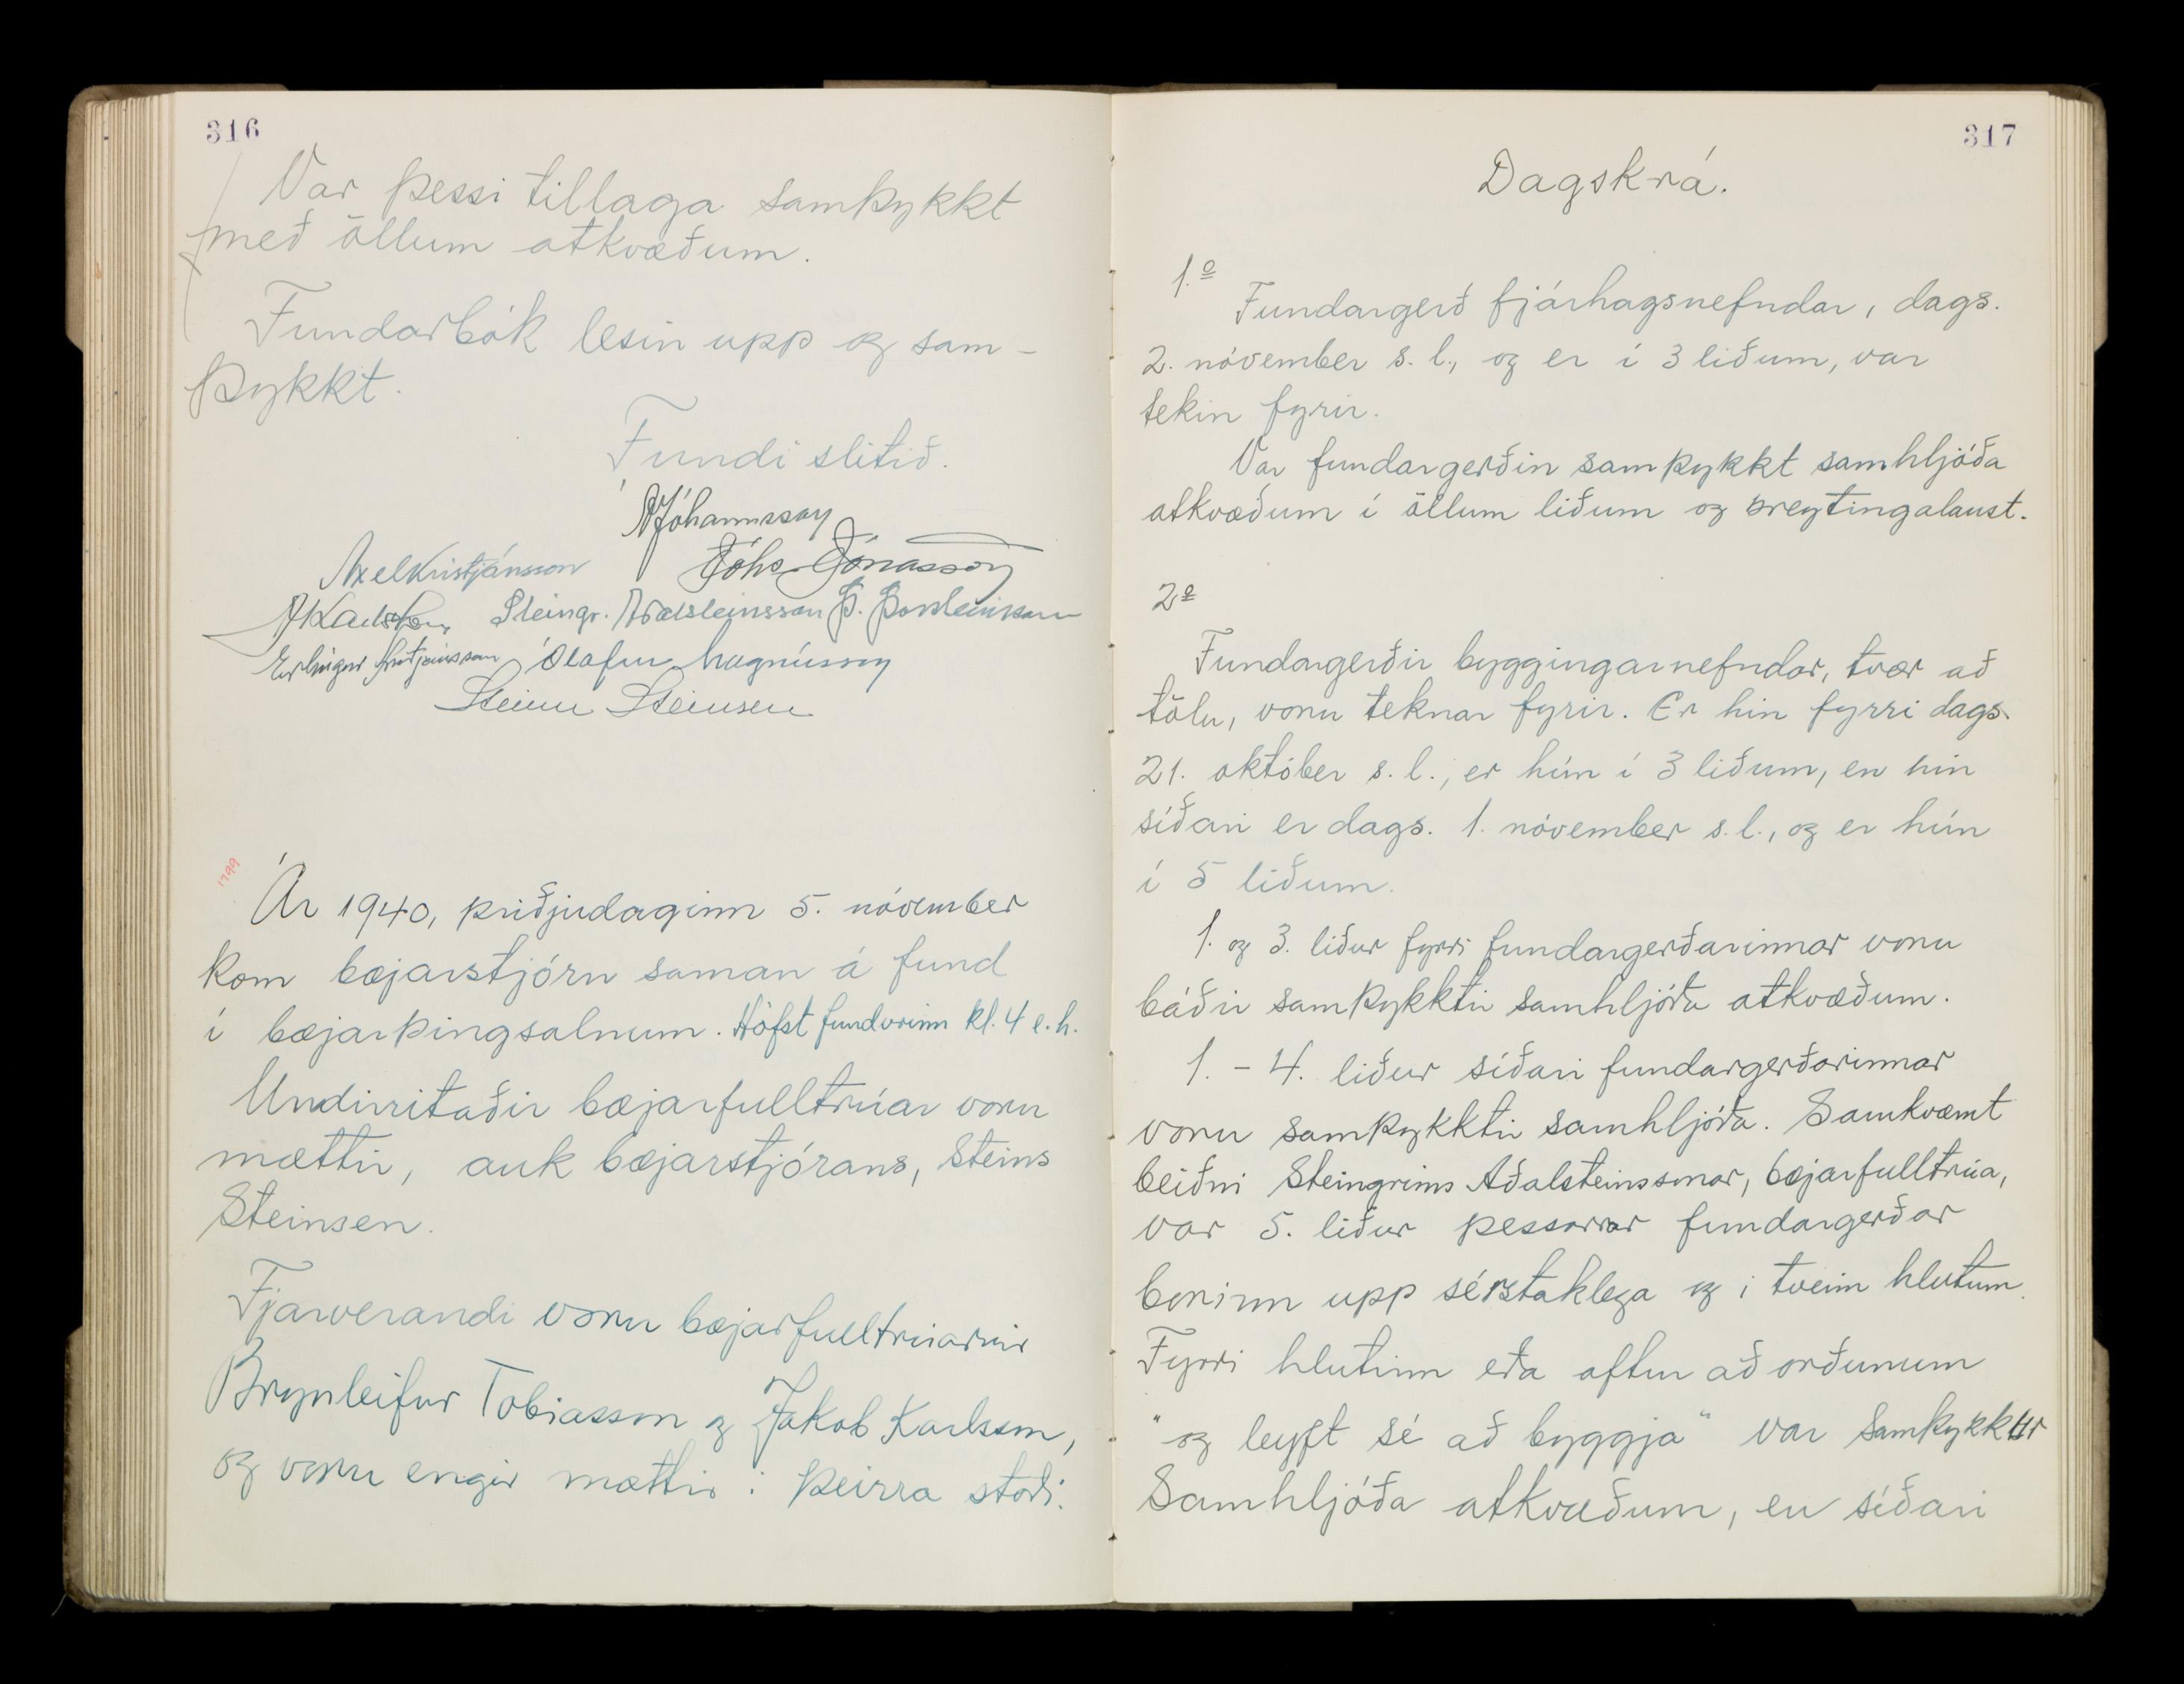 316
Var þessi tillaga samþykkt
með öllum atkvæðum.
Fundarbók lesin upp og sam-
þykkt.
Fundi slitið.
Jóhannsson
Axel Kristjánsson Jóhs. Jónasson
J Karlsson Steingr. Aðalsteinsson Þ. Þorsteinsson
Erlingur Friðjónsson Ólafur Magnússon
Steinn Steinsen
1799
Ár 1940, þriðjudaginn 5. nóvember
kom bæjarstjórn saman á fund
í bæjarþingsalnum. Hófst fundurinn kl. 4 e.h.
Undirritaðir bæjarfulltrúar voru
mættir, auk bæjarstjórans, Steins
Steinsen.
Fjarverandi voru bæjarfulltrúarnir
Brynleifur Tobiasson og Jakob Karlsson,
og voru engir mættir í þeirra stað.
317
Dagskrá.
1.º
Fundargerð fjárhagsnefndar, dags.
2. nóvember s.l., og er í 3 liðum, var
tekin fyrir.
Var fundargerðin samþykkt samhljóða
atkvæðum í öllum liðum og breytingalaust.
2º
Fundargerðir byggingarnefndar, tvær að
tölu, voru teknar fyrir. Er hin fyrri dags.
21. október s.l., er hún í 3 liðum, en hin
síðari er dags. 1. nóvember s.l., og er hún
í 5 liðum.
1. og 3. liður fyrri fundargerðarinnar voru
báðir samþykktir samhljóða atkvæðum.
1. - 4. liður síðari fundargerðarinnar
voru samþykktir samhljóða. Samkvæmt
beiðni Steingríms Aðalsteinssonar, bæjarfulltrúa,
var 5. liður þessarrar fundargerðar
borinn upp sérstaklega og í tveim hlutum.
Fyrri hlutinn eða aftur að orðunum
"og leyft sé að byggja" var samþykktur
samhljóða atkvæðum, en síðari